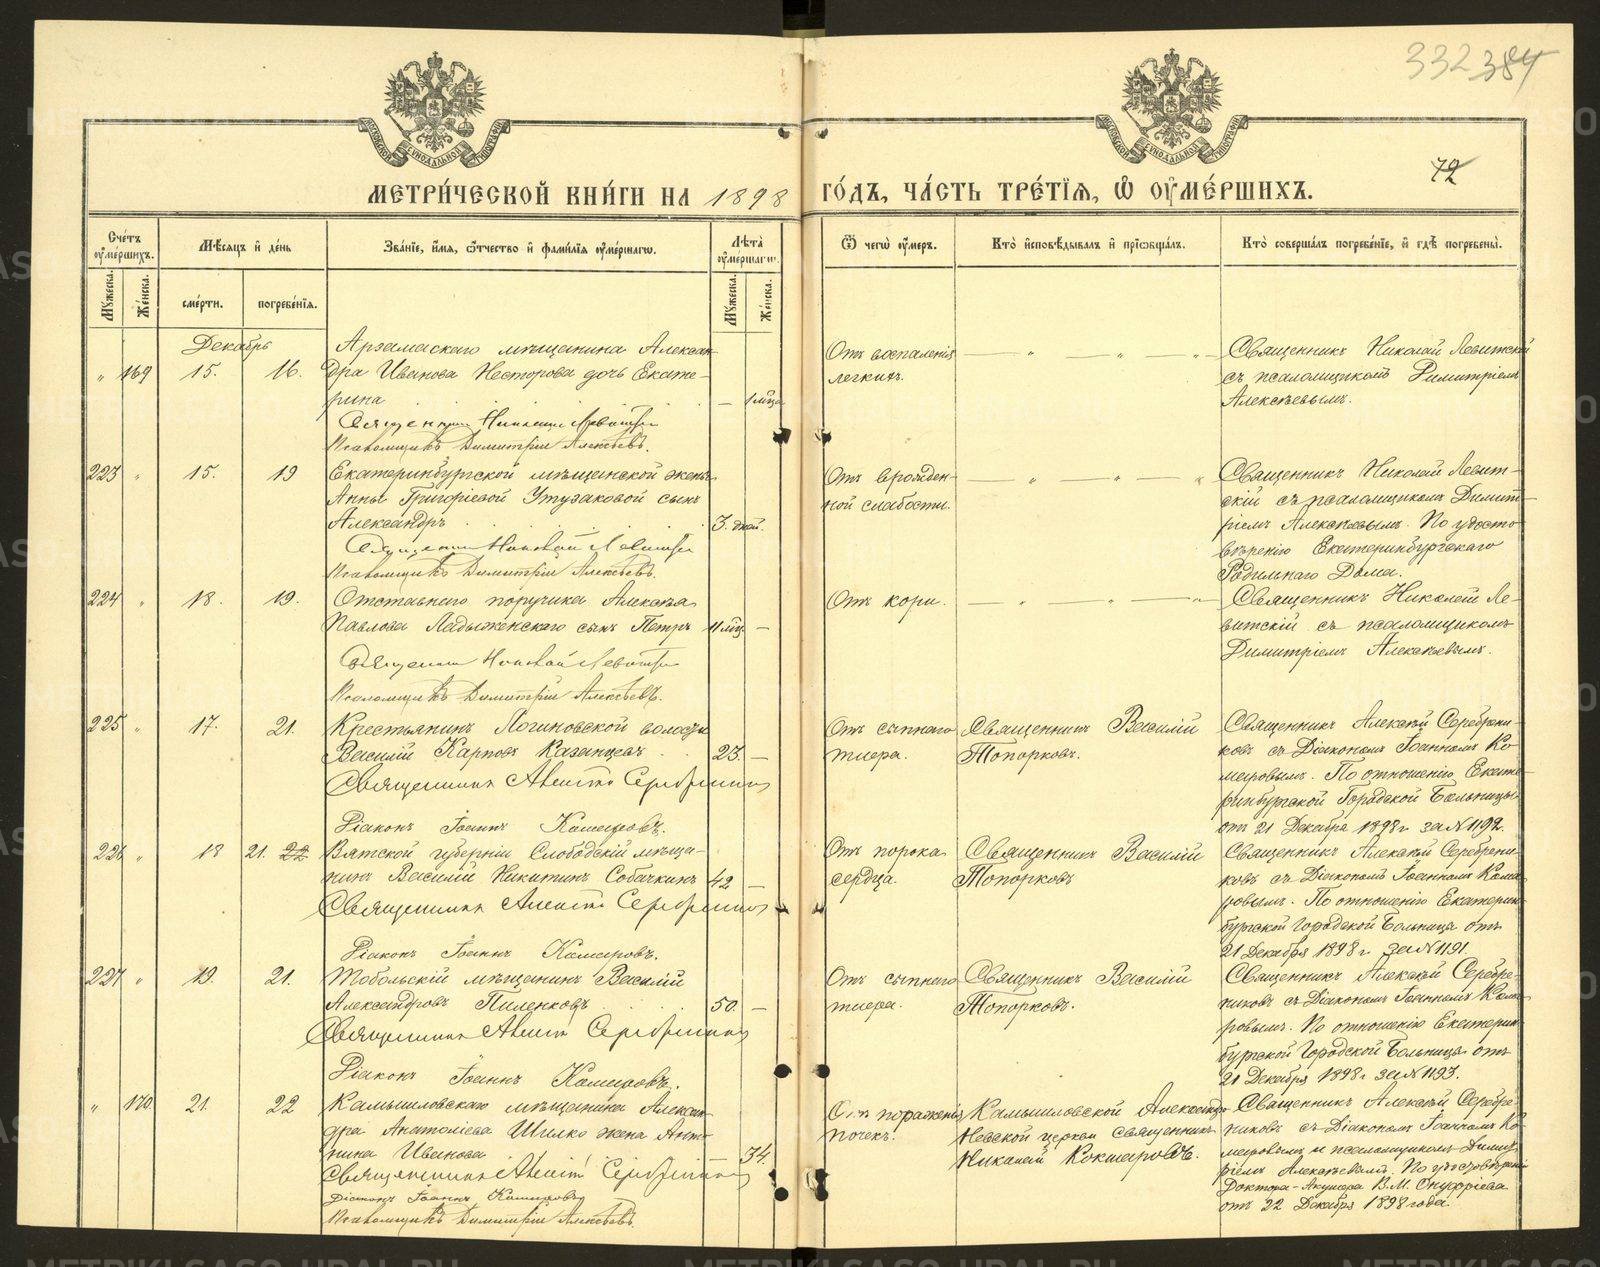 332 384
МОСКОВСКОЙ СѴНОДАЛЬНОЙ ТИПОГРАФІИ
МОСКОВСКОЙ СѴНОДАЛЬНОЙ ТИПОГРАФІИ
72
МЕТРИ́ЧЕСКОЙ КНИ́ГИ НА 1898 ГО́ДЪ, ЧА́СТЬ ТРЕ́ТІѦ, Ѡ҆ ОУ҆МЕ́РШИХЪ.
Сче́тъ оу҆ме́ршихъ.
Мѣ́сѧцъ и҆ де́нь
Зва́нїе, и҆́мѧ, ѻ҆́тчество и҆ фами́лїѧ оу҆ме́ршагѡ.
Лѣ́та оу҆ме́ршагѡ.
Ѿ чегѡ̀ оу҆́меръ.
Кто̀ и҆сповѣ́дывалъ и҆ прїѡбща́лъ.
Кто̀ соверша́лъ погребе́нїе, и҆ гдѣ̀ погребены̀.
Мꙋ́жеска.
Же́нска.
сме́рти.
погребе́нїѧ.
Мꙋ́жеска.
Же́нска.
Декабрь
„ 169 15. 16.
Арзамаскаго мѣщанина Алексан-
дра Иванова Несторова дочь Екате-
рина — 1 мѣца
Священникъ Николай Левитскій
Псаломщикъ Димитрій Алексѣевъ.
Отъ воспаленія
легкихъ.
— „ — „ — „ —
Священникъ Николай Левитскій
съ псаломщикомъ Димитріемъ
Алексѣевымъ.
223 „ 15. 19
Екатеринбургской мѣщанской жены
Анны Григорьевой Утузаковой сынъ
Александръ 3. дней.
Священникъ Николай Левитскій
Псаломщикъ Димитрій Алексѣевъ.
Отъ врожден-
ной слабости.
— „ — „ — „
Священникъ Николай Левит-
скій съ псаломщикомъ Димит-
ріемъ Алексѣевымъ. По удосто-
вѣренію Екатеринбургскаго
Родильнаго Дома.
224 „ 18. 19.
Отставнаго поручика Алексѣя
Павлова Ладыженскаго сынъ Петръ 11 мѣц. —
Священникъ Николай Левитскій
Псаломщикъ Димитрій Алексѣевъ.
Отъ кори.
— „ — „ — „
Священникъ Николай Ле-
витскій съ псаломщикомъ
Димитріемъ Алексѣевымъ.
225 „ 17. 21.
Крестьянинъ Логиновской волости
Василій Карповъ Казанцевъ 23. —
Священникъ Алексѣй Серебренниковъ
Діаконъ Іоаннъ Комаровъ.
Отъ сыпнаго
тифа.
Священникъ Василій
Топорковъ.
Священникъ Алексѣй Серебрени-
ковъ съ Діакономъ Іоанномъ Ко-
маровымъ. По отношенію Екате-
ринбургской Городской Больницы
отъ 21 Декабря 1898 г за № 1192.
226 „ 18 21. 22
Вятской губерніи Слободскій мѣща-
нинъ Василій Никитинъ Собачкинъ 42 —
Священникъ Алексѣй Серебренниковъ
Діаконъ Іоаннъ Комаровъ.
Отъ порока
сердца.
Священникъ Василій
Топорковъ
Священникъ Алексѣй Серебрени-
ковъ съ Діакономъ Іоанномъ Кома-
ровымъ. По отношенію Екатерин-
бургской Городской Больницы отъ
21 Декабря 1898 г. за № 1191.
227 „ 19. 21.
Тобольскій мѣщанинъ Василій
Александровъ Пиленковъ 50. —
Священникъ Алексѣй Серебренниковъ
Діаконъ Іоаннъ Комаровъ.
Отъ сыпнаго
тифа.
Священникъ Василій
Топорковъ.
Священникъ Алексѣй Серебре-
никовъ съ Діакономъ Іоанномъ Кома-
ровымъ. По отношенію Екатерин-
бургской Городской Больницы отъ
21 Декабря 1898 г за № 1193.
„ 170. 21. 22
Камышловскаго мѣщанина Алексан-
дра Анатоліева Шилко жена Анто-
нина Иванова 34.
Священникъ Алексѣй Серебренниковъ
Діаконъ Іоаннъ Комаровъ
Псаломщикъ Димитрій Алексѣевъ.
Отъ пораженія
почекъ.
Камышловской Александро-
Невской церкви священникъ
Николай Кокшаровъ.
Священникъ Алексѣй Серебре-
никовъ съ Діакономъ Іоанномъ Ко-
маровымъ и псаломщикомъ Димит-
ріемъ Алексѣевымъ. По удостовѣренію
Доктора-Акушера В.М. Онуфріева
отъ 22 Декабря 1898 года.